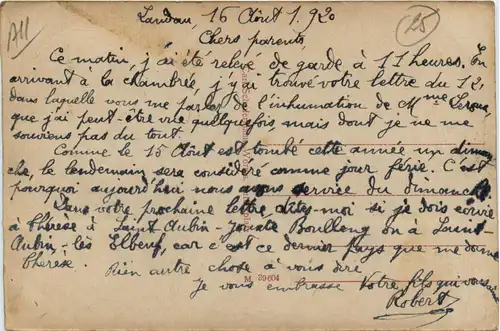 All
25
Landau, 16 Août 1.920
Chers parents,
Ce matin, j'ai été relevé de garde à 11 heures. En
arrivant à la chambrée, j'y ai trouvé votre lettre du 12,
dans laquelle vous me parlez de l'inhumation de Mme
que j'ai peut-être vue quelquefois, mais dont je ne me
souviens pas du tout.
Comme le 15 Août est tombé cette année un diman-
che, le lendemain sera considéré comme jour férié. C'est
pourquoi aujourd'hui nous avons service du dimanche
Dans votre prochaine lettre, dites-moi si je dois écrire
à Thérèse à Saint Aubin - Boulleng ou à Saint-
Aubin-lès Elbeuf, car c'est ce dernier pays que me donne
Thérèse.
Rien autre chose à vous dire
M. 39604
Je vous embrasse Votre fils qui vous
Robert